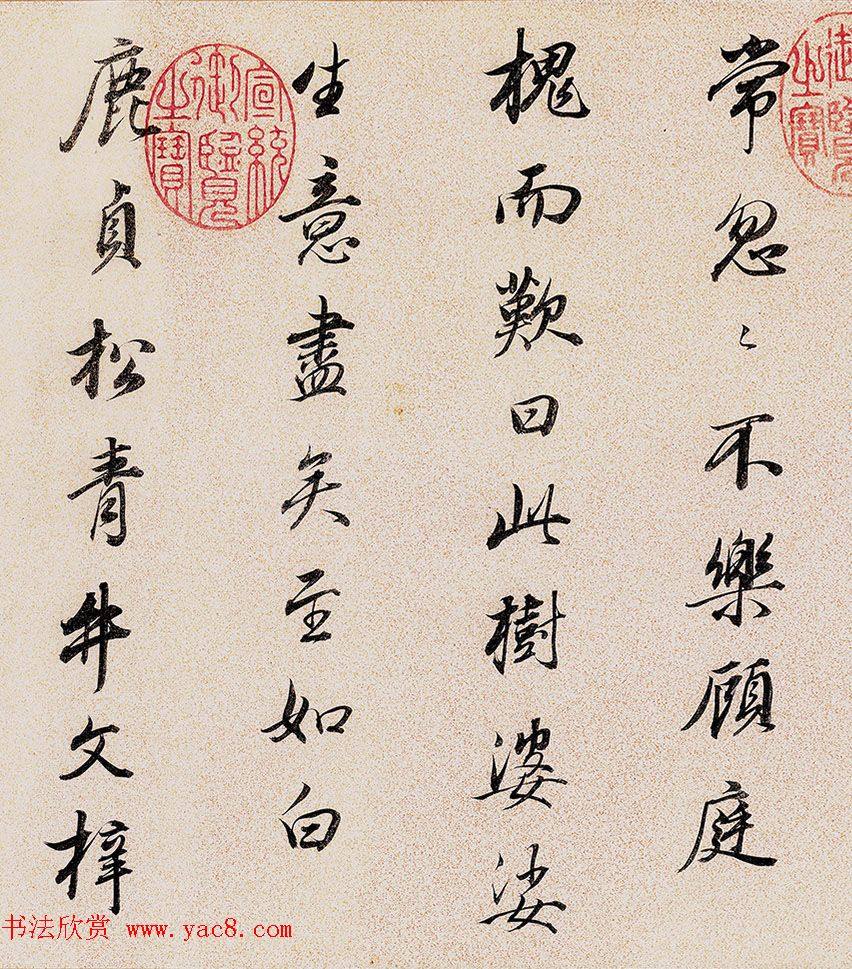 常忽〻不樂顧庭
槐而歎曰此樹婆娑
生意盡矣至如白
鹿貞松青牛文梓
御覽之寶
宣統御覽之寶
书法欣赏 www.yac8.com